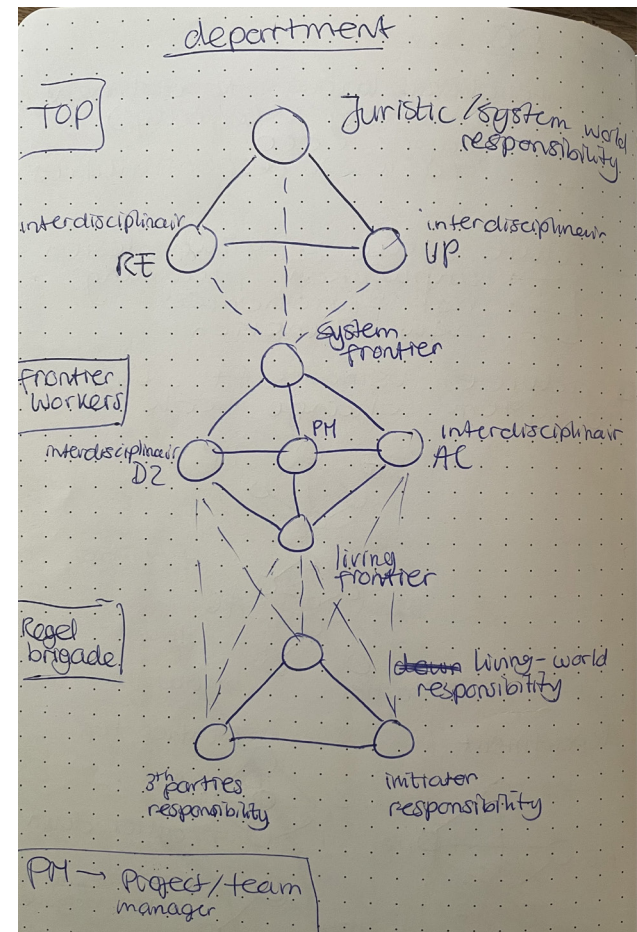 department
TOP
Juristic/system world
responsibility
interdisciplinair
RE
interdisciplinair
UP
system
frontier
frontier
workers
PM
interdisciplinair
DZ
interdisciplinair
AC
living
frontier
Regel
brigade
living-world
responsibility
3th parties
responsibility
initiater
responsibility
PM → Project/team
manager